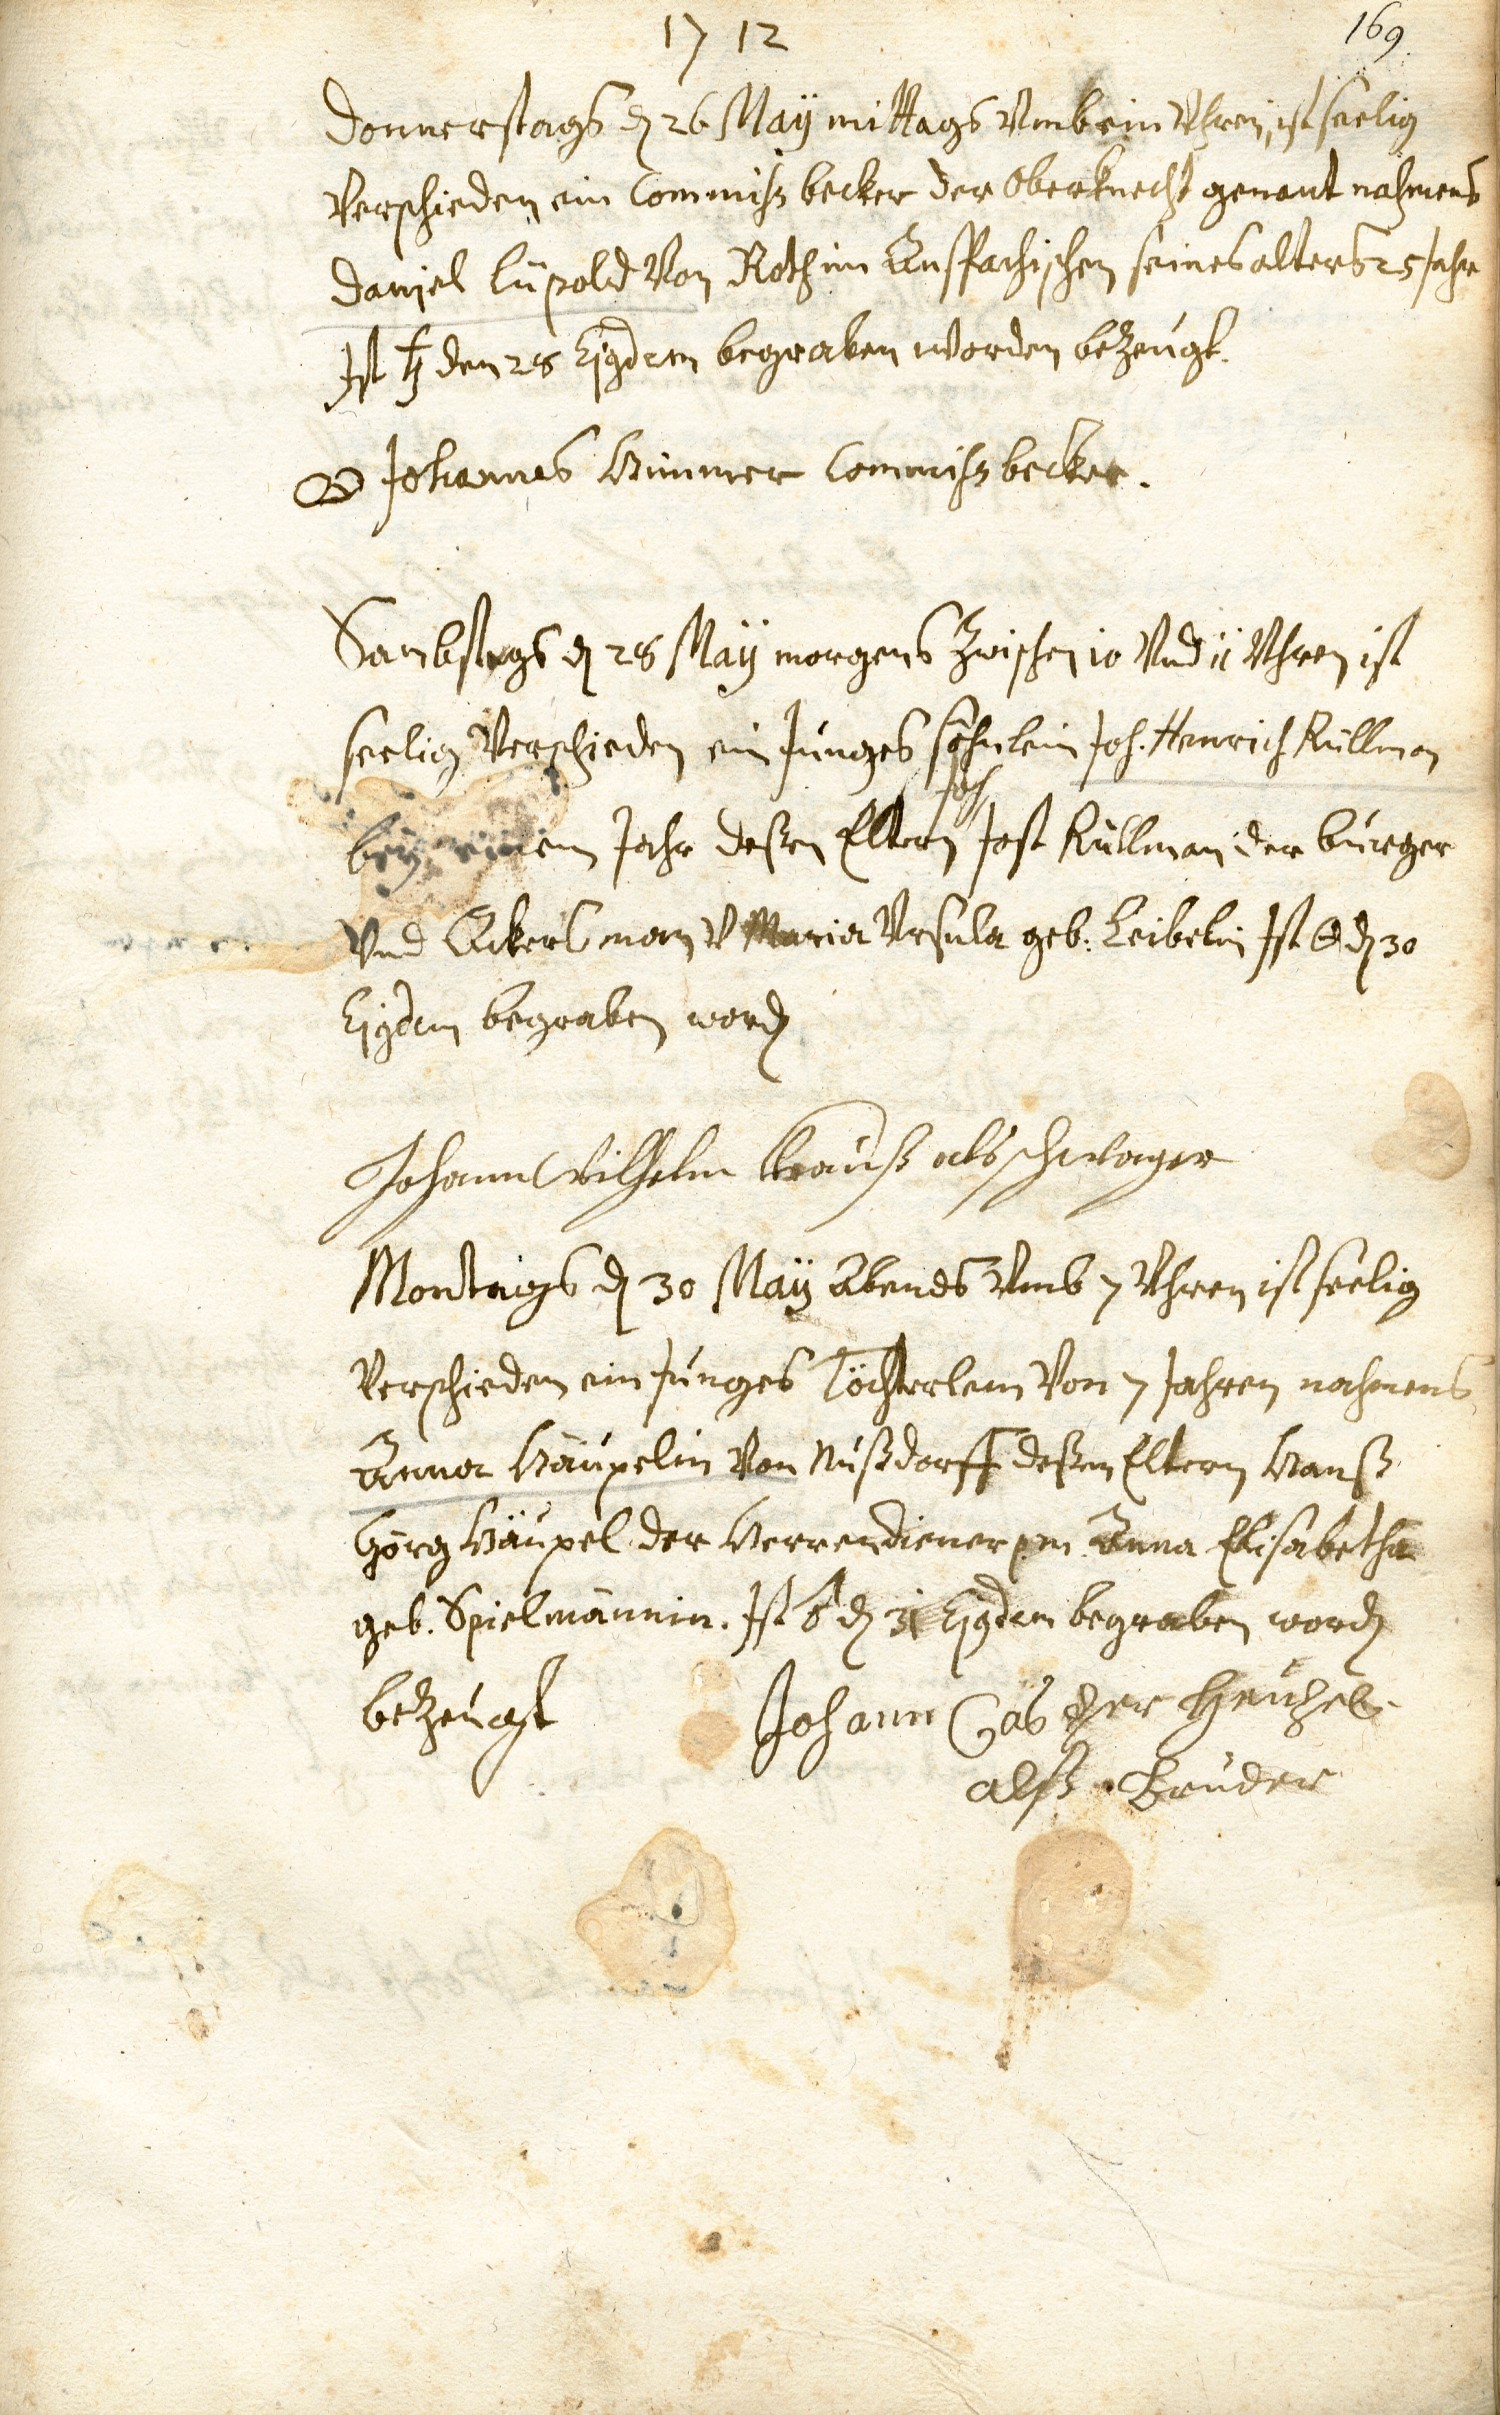 1712
169
Donnerstags d 26 Maÿ mittags Vmb ein Vhren, ist seelig
Verschieden ein Commiß becker der Oberknecht genant nahmens
Daniel Lüpold Von Roth im Anspachischen seines alters 25 Jahr
Ist ♄ den 28 Ejqdem begraben worden bezeugt.
Johannes Wimmer Commiß becker.
Sambstags d 28 Maÿ morgens Zwischen 10 Vnd 11 Vhren ist
seelig Verschieden ein Junges söhnlein Joh. Henrich Küllman
beÿ einem Jahr deßen Eltern Joh Jost Küllman der burger
Vnd Ackersman V Maria Vrsula geb: Leibelin Ist d 30
Ejqdem begraben word
Johann Wilhelm Krauß als schwager
Montags d 30 Maÿ Abends Vmb 7 Vhren ist seelig
Verschieden ein Junges Töchterlein Von 7 Jahren nahmens
Anna Häupelin Von Nußdorff deßen Eltern Hanß
Görg Häupel der Herrendiener Anna Elisabetha
geb. Spielmännin. Ist d 31 Ejqdem begraben word
bezeugt
Johann Casper Heüzel
alß Bruder